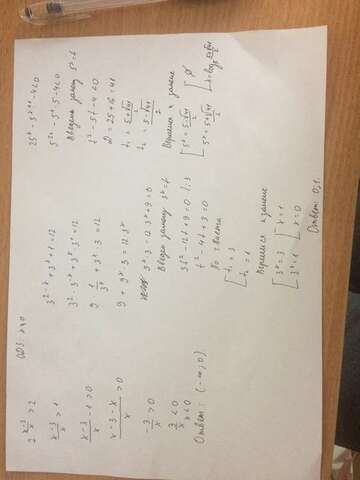 ОДЗ: x≠0
2^((x-3)/x) > 2
(x-3)/x > 1
(x-3)/x - 1 > 0
(x-3-x)/x > 0
-3/x > 0
3/x < 0
x < 0
Ответ: (-∞; 0)
3^(2-x) + 3^(x+1) = 12
3^2 · 3^(-x) + 3^x · 3^1 = 12
9 · 1/3^x + 3^x · 3 = 12
9 + 9^x · 3 = 12 · 3^x
9^x · 3 - 12 · 3^x + 9 = 0
Введём замену 3^x = t
3t^2 - 12t + 9 = 0 | :3
t^2 - 4t + 3 = 0
По т. Виета
[ t₁ = 3
[ t₂ = 1
Вернёмся к замене
[ 3^x = 3 [ x = 1
[ 3^x = 1 [ x = 0
Ответ: 0; 1.
25^x - 5^(x+1) - 4 < 0
5^(2x) - 5^x · 5 - 4 < 0
Введём замену 5^x = t
t^2 - 5t - 4 < 0
D = 25 + 16 = 41
t₁ = (5+√41)/2
t₂ = (5-√41)/2
Вернёмся к замене
[ 5^x = (5-√41)/2 [ ∅
[ 5^x = (5+√41)/2 [ x = log₅ (5+√41)/2